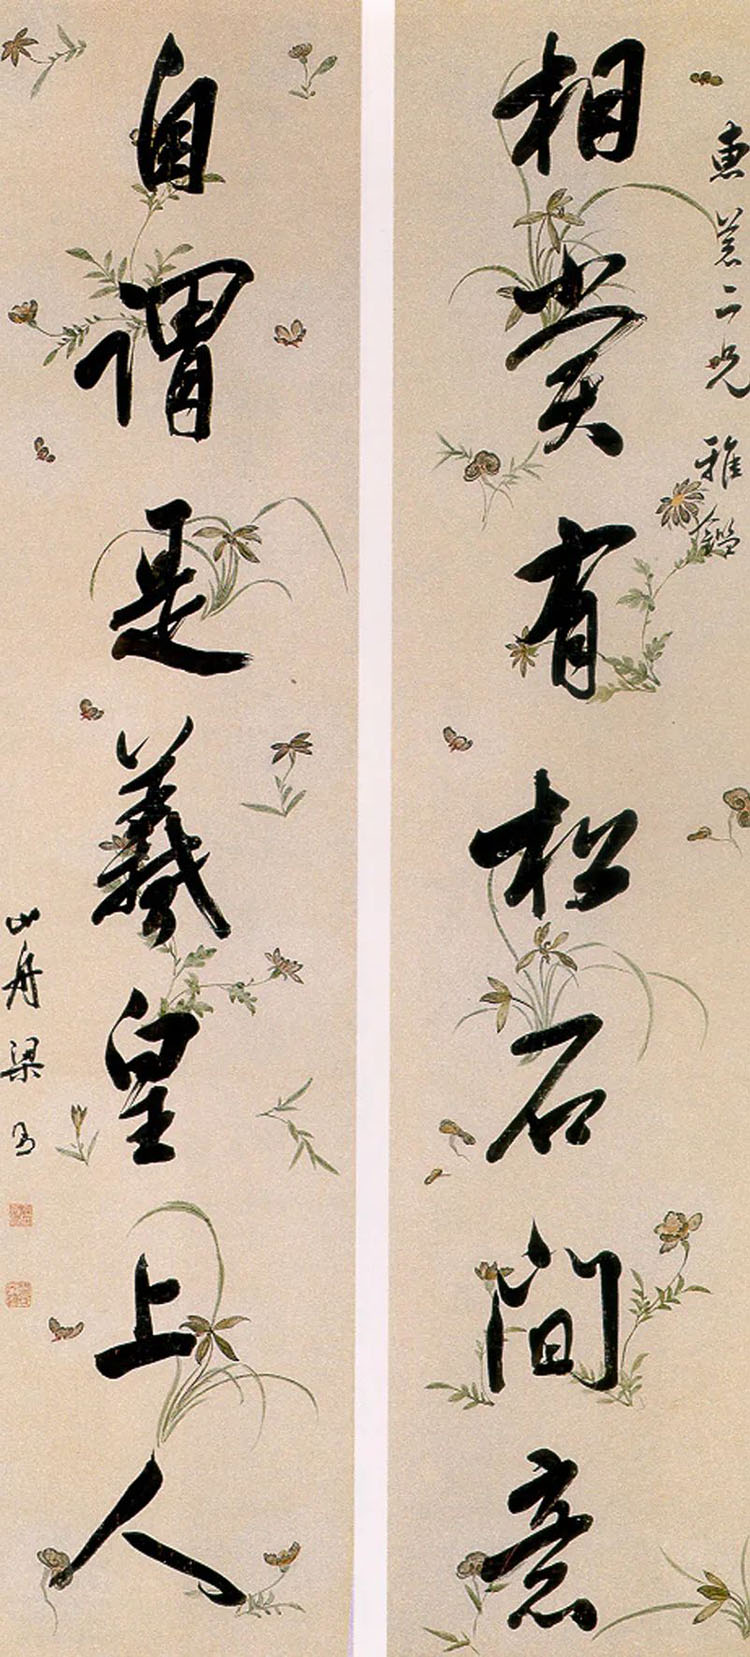 惠 二兄雅鑑
相賞有松石間意
自謂是羲皇上人
山舟梁